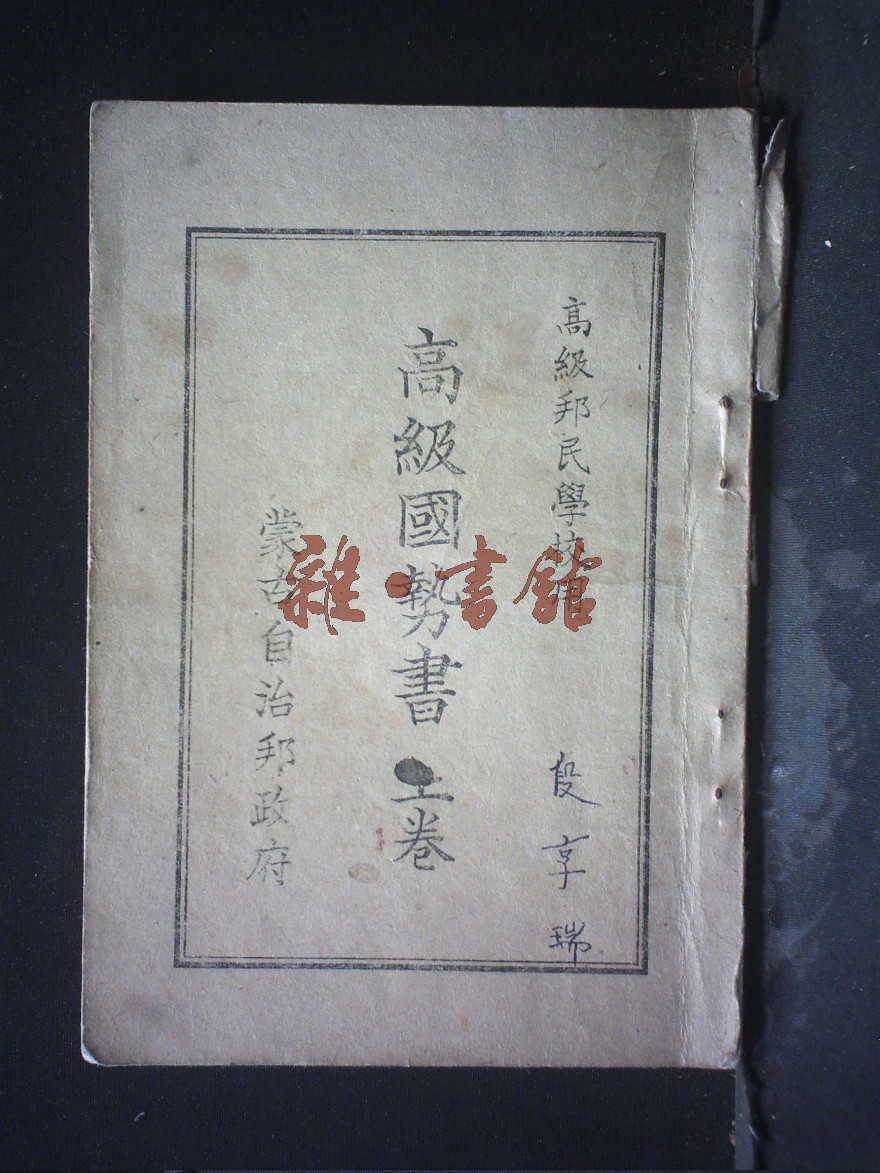 高級邦民學校用
段享瑞
高級國勢書 上卷
蒙古自治邦政府
雜·書館